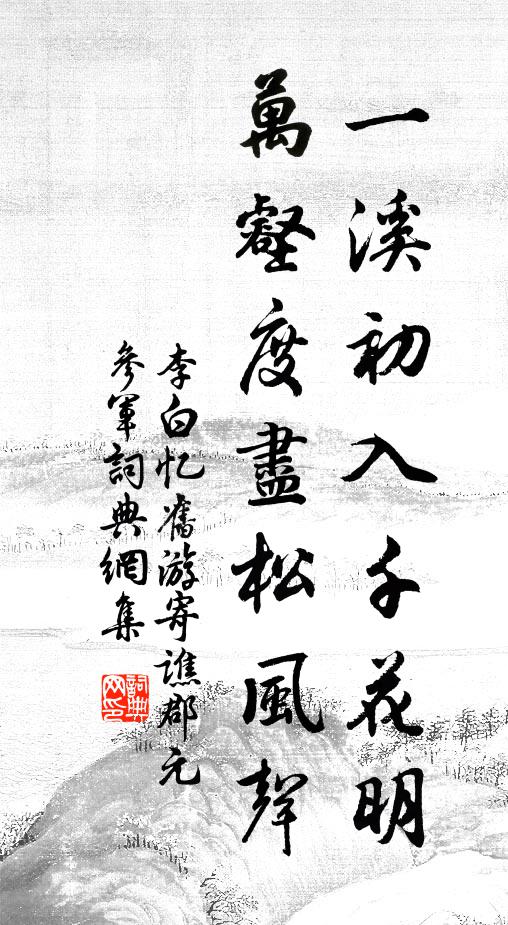 一溪初入千花明
萬壑度盡松風聲
李白忆舊游寄譙郡元
參軍詞典網集
詞典
网印